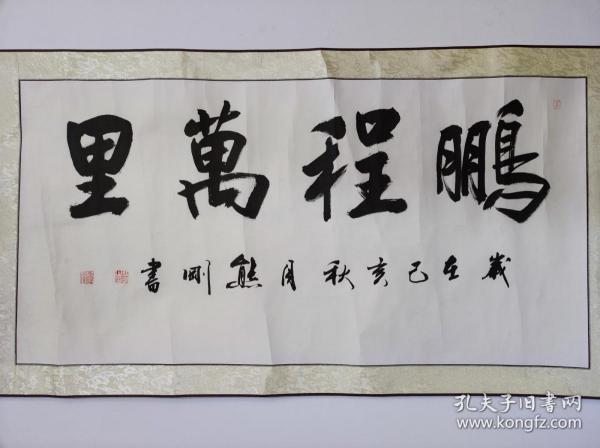 鵬程萬里
歲在己亥秋月熊剛書
孔夫子旧書网
www.kongfz.com